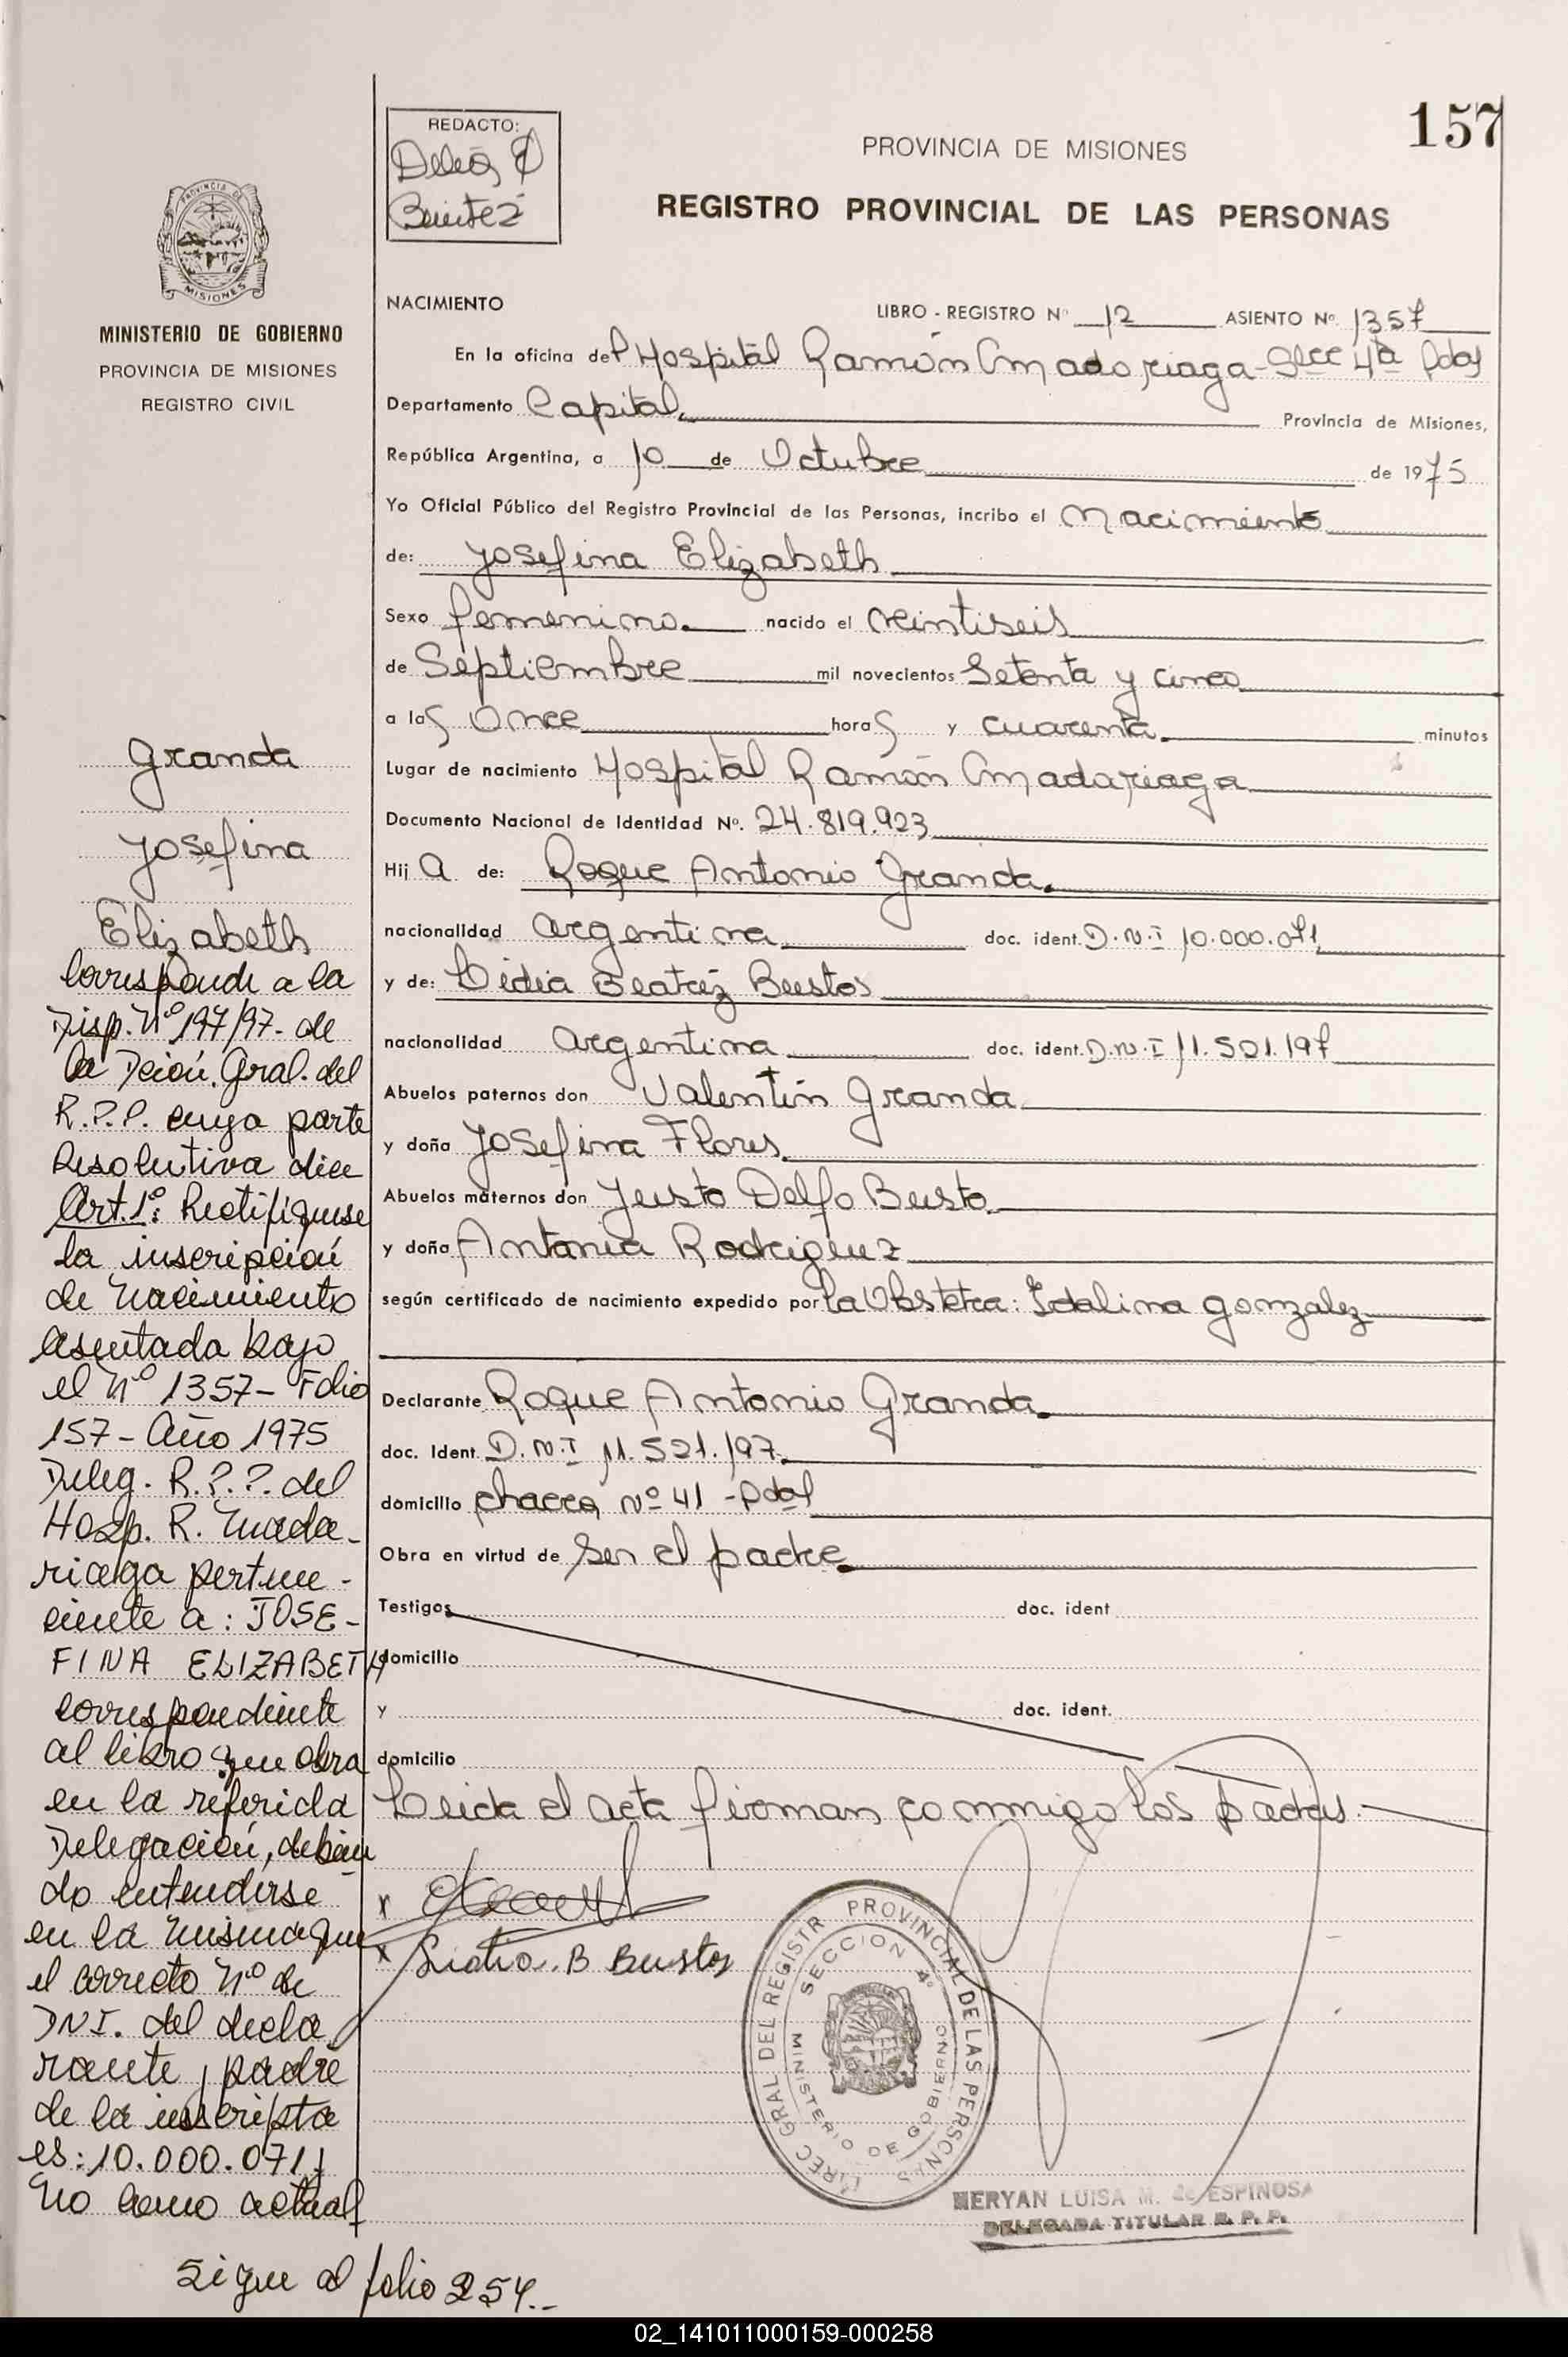 157
REDACTO:
Delia
Benitez
PROVINCIA DE MISIONES
REGISTRO PROVINCIAL DE LAS PERSONAS
PROVINCIA DE
MISIONES
MINISTERIO DE GOBIERNO
PROVINCIA DE MISIONES
REGISTRO CIVIL
NACIMIENTO LIBRO - REGISTRO Nº 12 ASIENTO Nº 1357
En la oficina del Hospital Ramón Madariaga - Secc 4ª Pdas
Departamento Capital. Provincia de Misiones,
República Argentina, a 10 de Octubre de 1975
Yo Oficial Público del Registro Provincial de las Personas, incribo el Nacimiento
de: Josefina Elizabeth
Sexo femenino. nacido el veintiseis
de Septiembre mil novecientos Setenta y cinco
a las Once horas y cuarenta. minutos
Lugar de nacimiento Hospital Ramón Madariaga
Documento Nacional de Identidad Nº. 24.819.923
Hij A de: Roque Antonio Granda.
nacionalidad argentina doc. ident. D.N.I 10.000.071
y de: Lidia Beatriz Bustos
nacionalidad argentina doc. ident. D.N.I 11.521.197
Abuelos paternos don Valentín Granda
y doña Josefina Flores.
Abuelos maternos don Justo Delfo Busto
y doña Antonia Rodriguez
según certificado de nacimiento expedido por la Obstetra: Idalina gonzalez
Declarante Roque Antonio Granda.
doc. Ident. D.N.I 11.521.197.
domicilio chacra nº 41 - Pdas
Obra en virtud de Ser el padre
Testigos doc. ident
domicilio
y doc. ident.
domicilio
Leida el acta firman conmigo los padres.
x
x Lidia. B Bustos
DIREC GRAL DEL REGISTR PROVINCIAL DE LAS PERSONAS
SECCION 4º
MINISTERIO DE GOBIERNO
MERYAN LUISA M. de ESPINOSA
DELEGADA TITULAR R. P. P.
Granda
Josefina
Elizabeth
Corresponde a la
Disp. Nº 197/97- de
la Dción. Gral. del
R.P.P. cuya parte
Resolutiva dice
Art. 1º: Rectifíquese
la inscripción
de Nacimiento
asentada bajo
el Nº 1357- Folio
157- Año 1975
Deleg. R.P.P. del
Hosp. R. Mada-
riaga pertene-
ciente a: JOSE-
FINA ELIZABETH
correspondiente
al libro que obra
en la referida
Delegación, debien
do entenderse
en la misma que
el correcto Nº de
DNI. del decla
rante, padre
de la inscripta
es: 10.000.071 y
no como actual
Sigue al folio 254.-
02_141011000159-000258